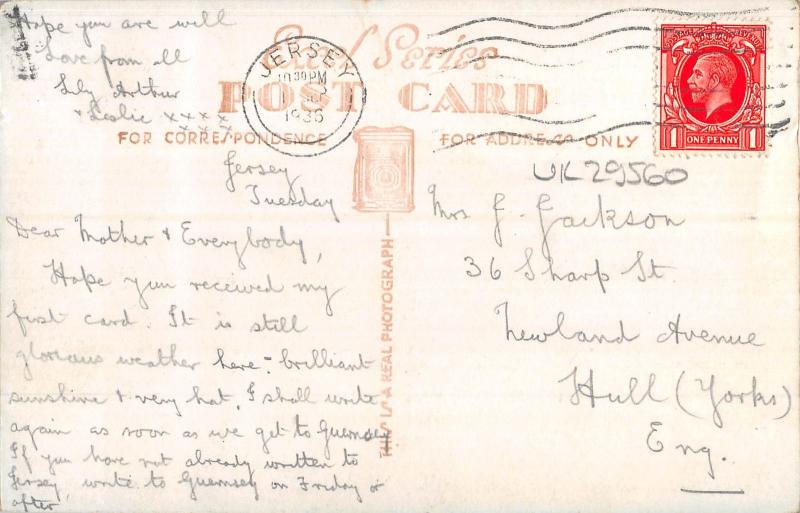 Hope you are well
Love from all
Lily Arthur
& Leslie xxxx
xxx
Excel Series
POST CARD
FOR CORRESPONDENCE
FOR ADDRESS ONLY
JERSEY
10 30 PM
1936
POSTAGE REVENUE
1 ONE PENNY 1
UK29560
THIS IS A REAL PHOTOGRAPH
Jersey
Tuesday
Dear Mother & Everybody,
Hope you received my
first card. It is still
glorious weather here - brilliant
sunshine & very hot. I shall write
again as soon as we get to Guernsey
If you have not already written to
Jersey, write to Guernsey on Friday or
after
Mrs J. Jackson
36 Sharp St.
Newland Avenue
Hull (Yorks)
Eng.